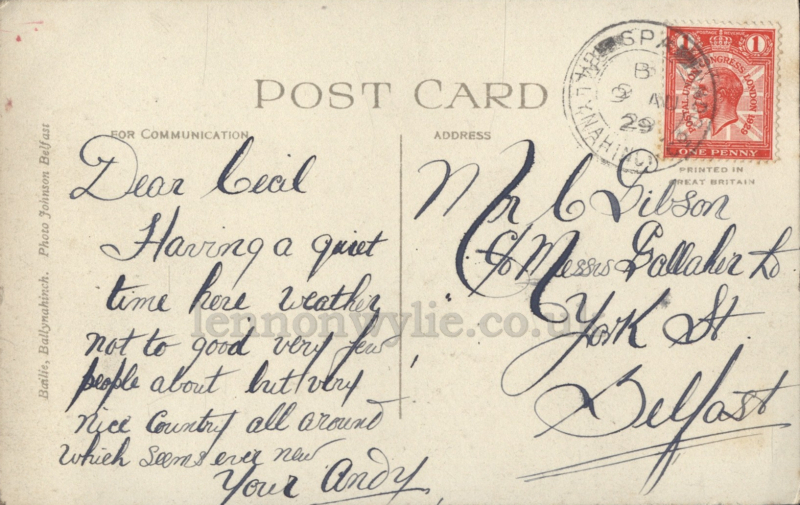 POST CARD
FOR COMMUNICATION
ADDRESS
PRINTED IN
GREAT BRITAIN
Bailie, Ballynahinch. Photo Johnson Belfast
SPA
BALLYNAHINCH
B
9 AU
29
1 POSTAGE REVENUE 1
POSTAL UNION CONGRESS LONDON 1929
ONE PENNY
Dear Cecil
Having a quiet
time here weather
not to good very few
people about but very
nice Country all around
which seems ever new
Your Andy
Mr C Gibson
c/o Messrs Gallaher Ld
York St.
Belfast
lennonwylie.co.uk